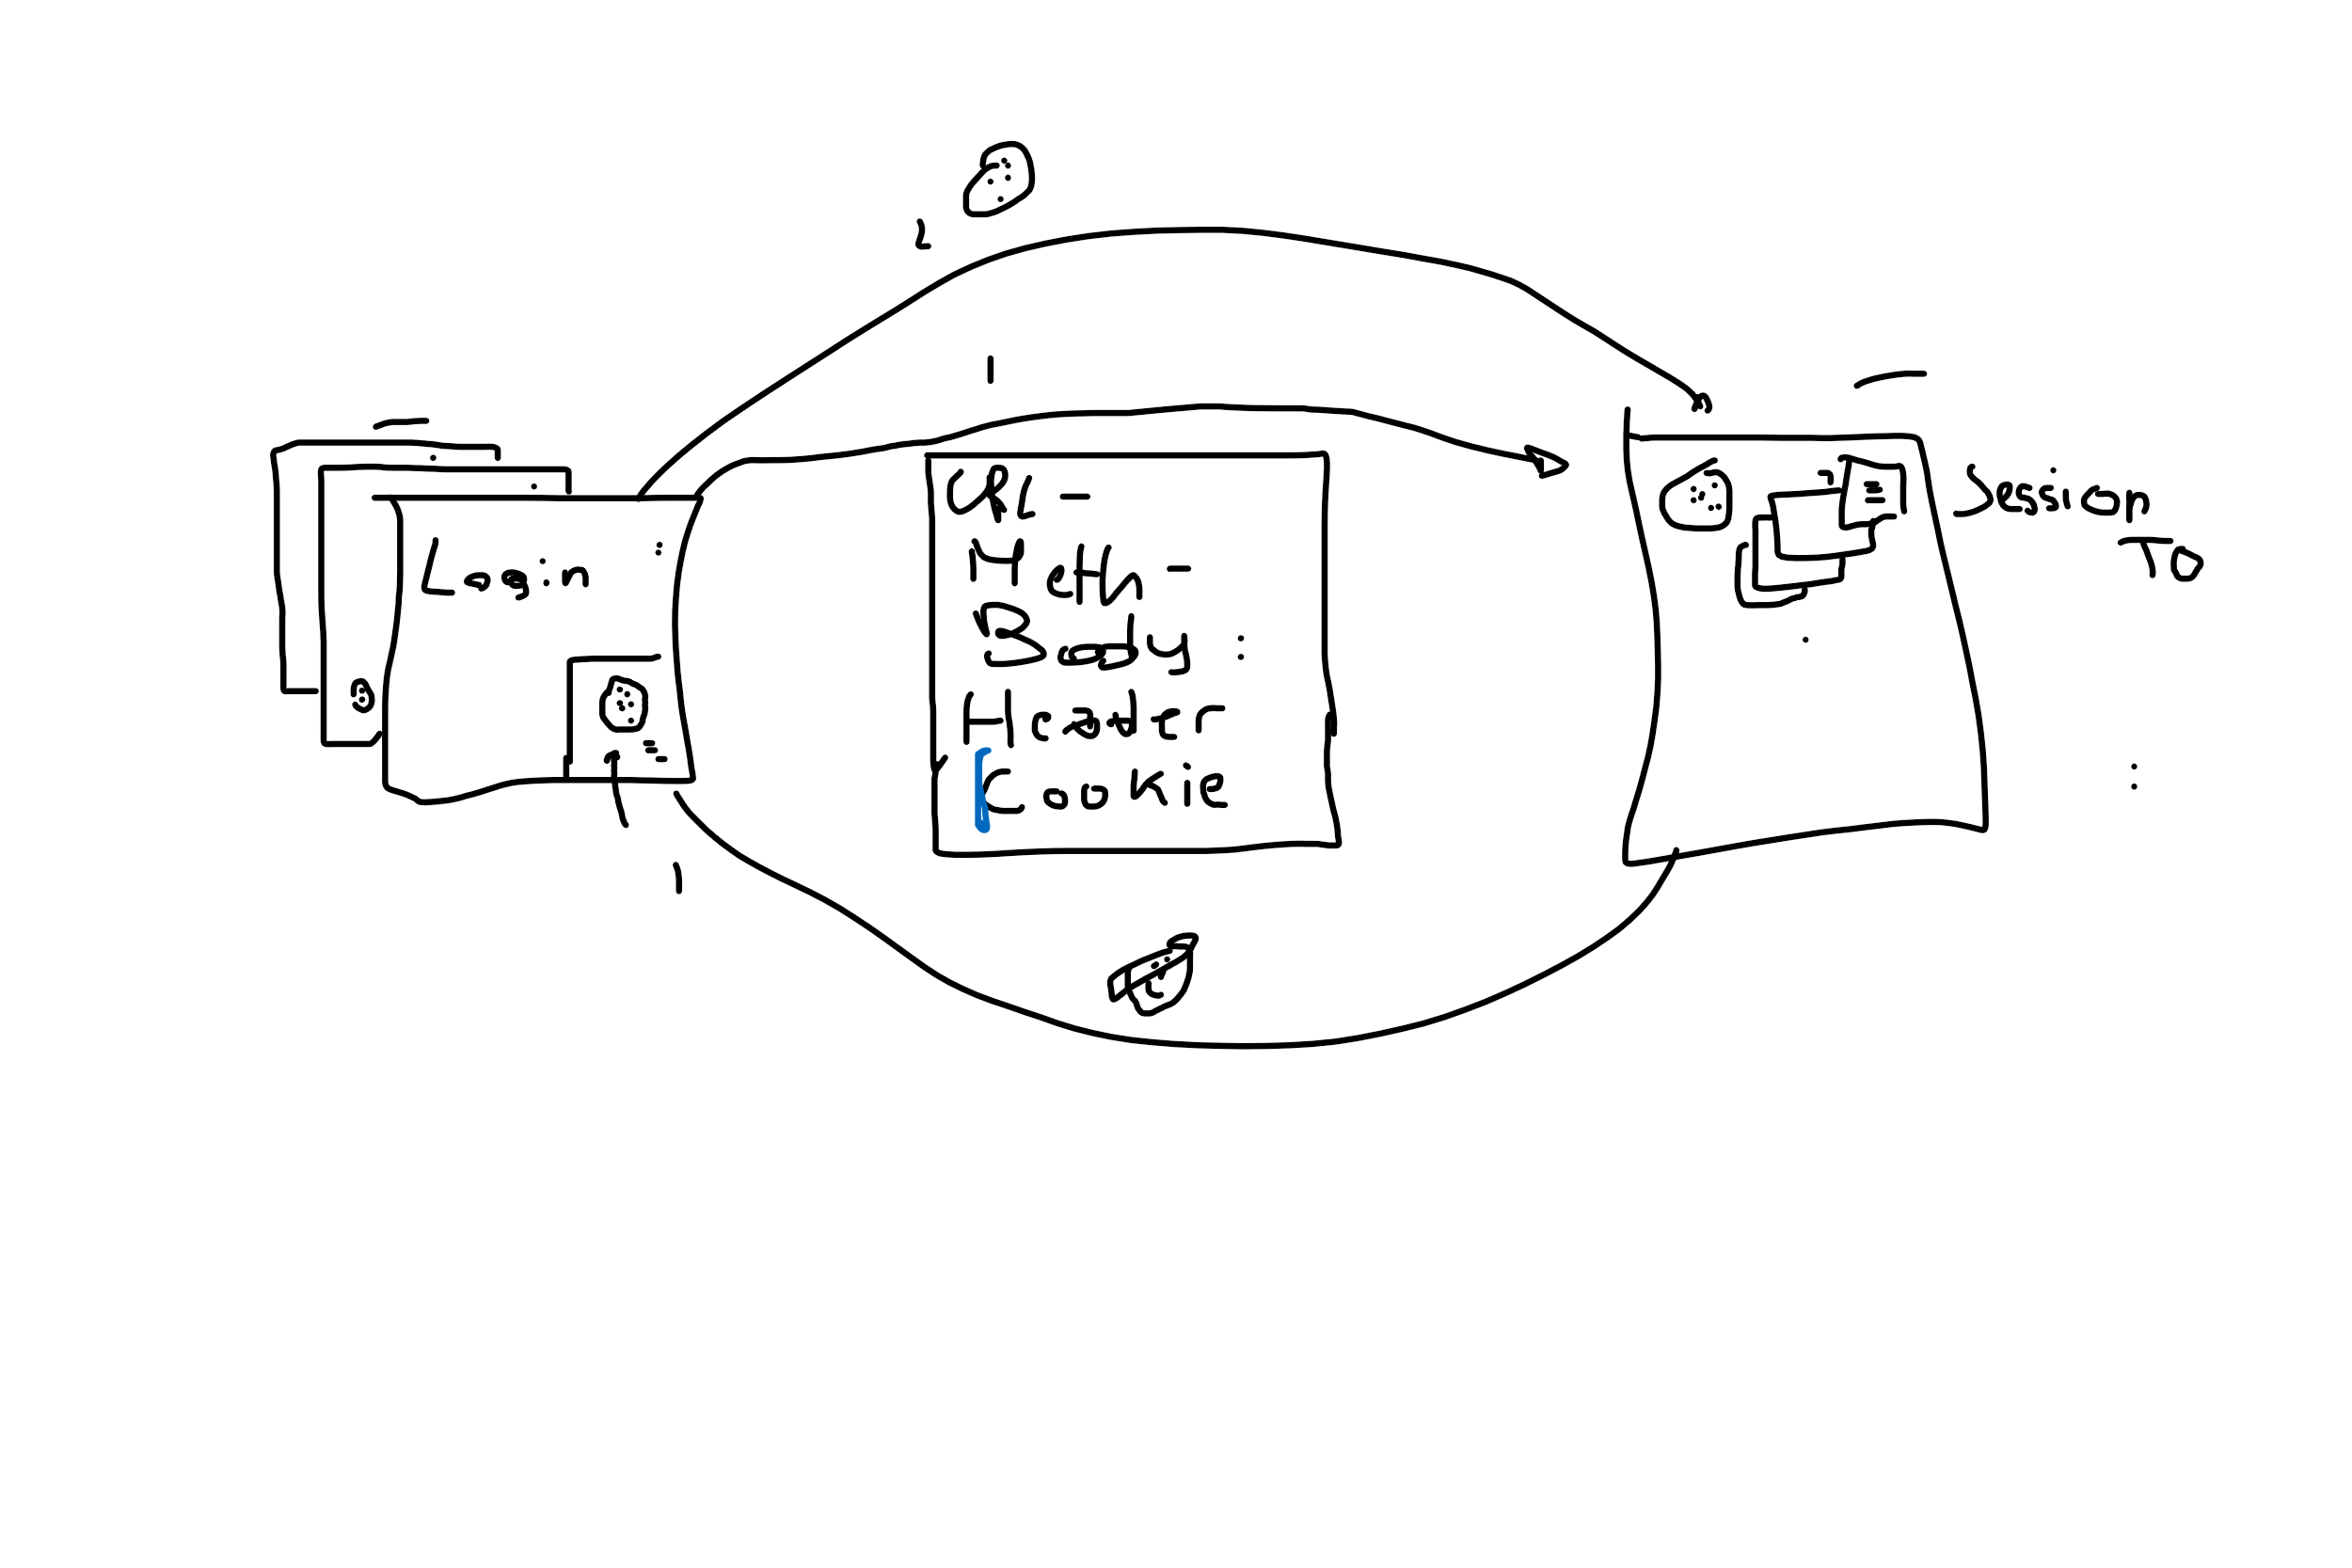 Login
URL -
Meth -
Body :
Header
Cookie
Session
ID
:
1